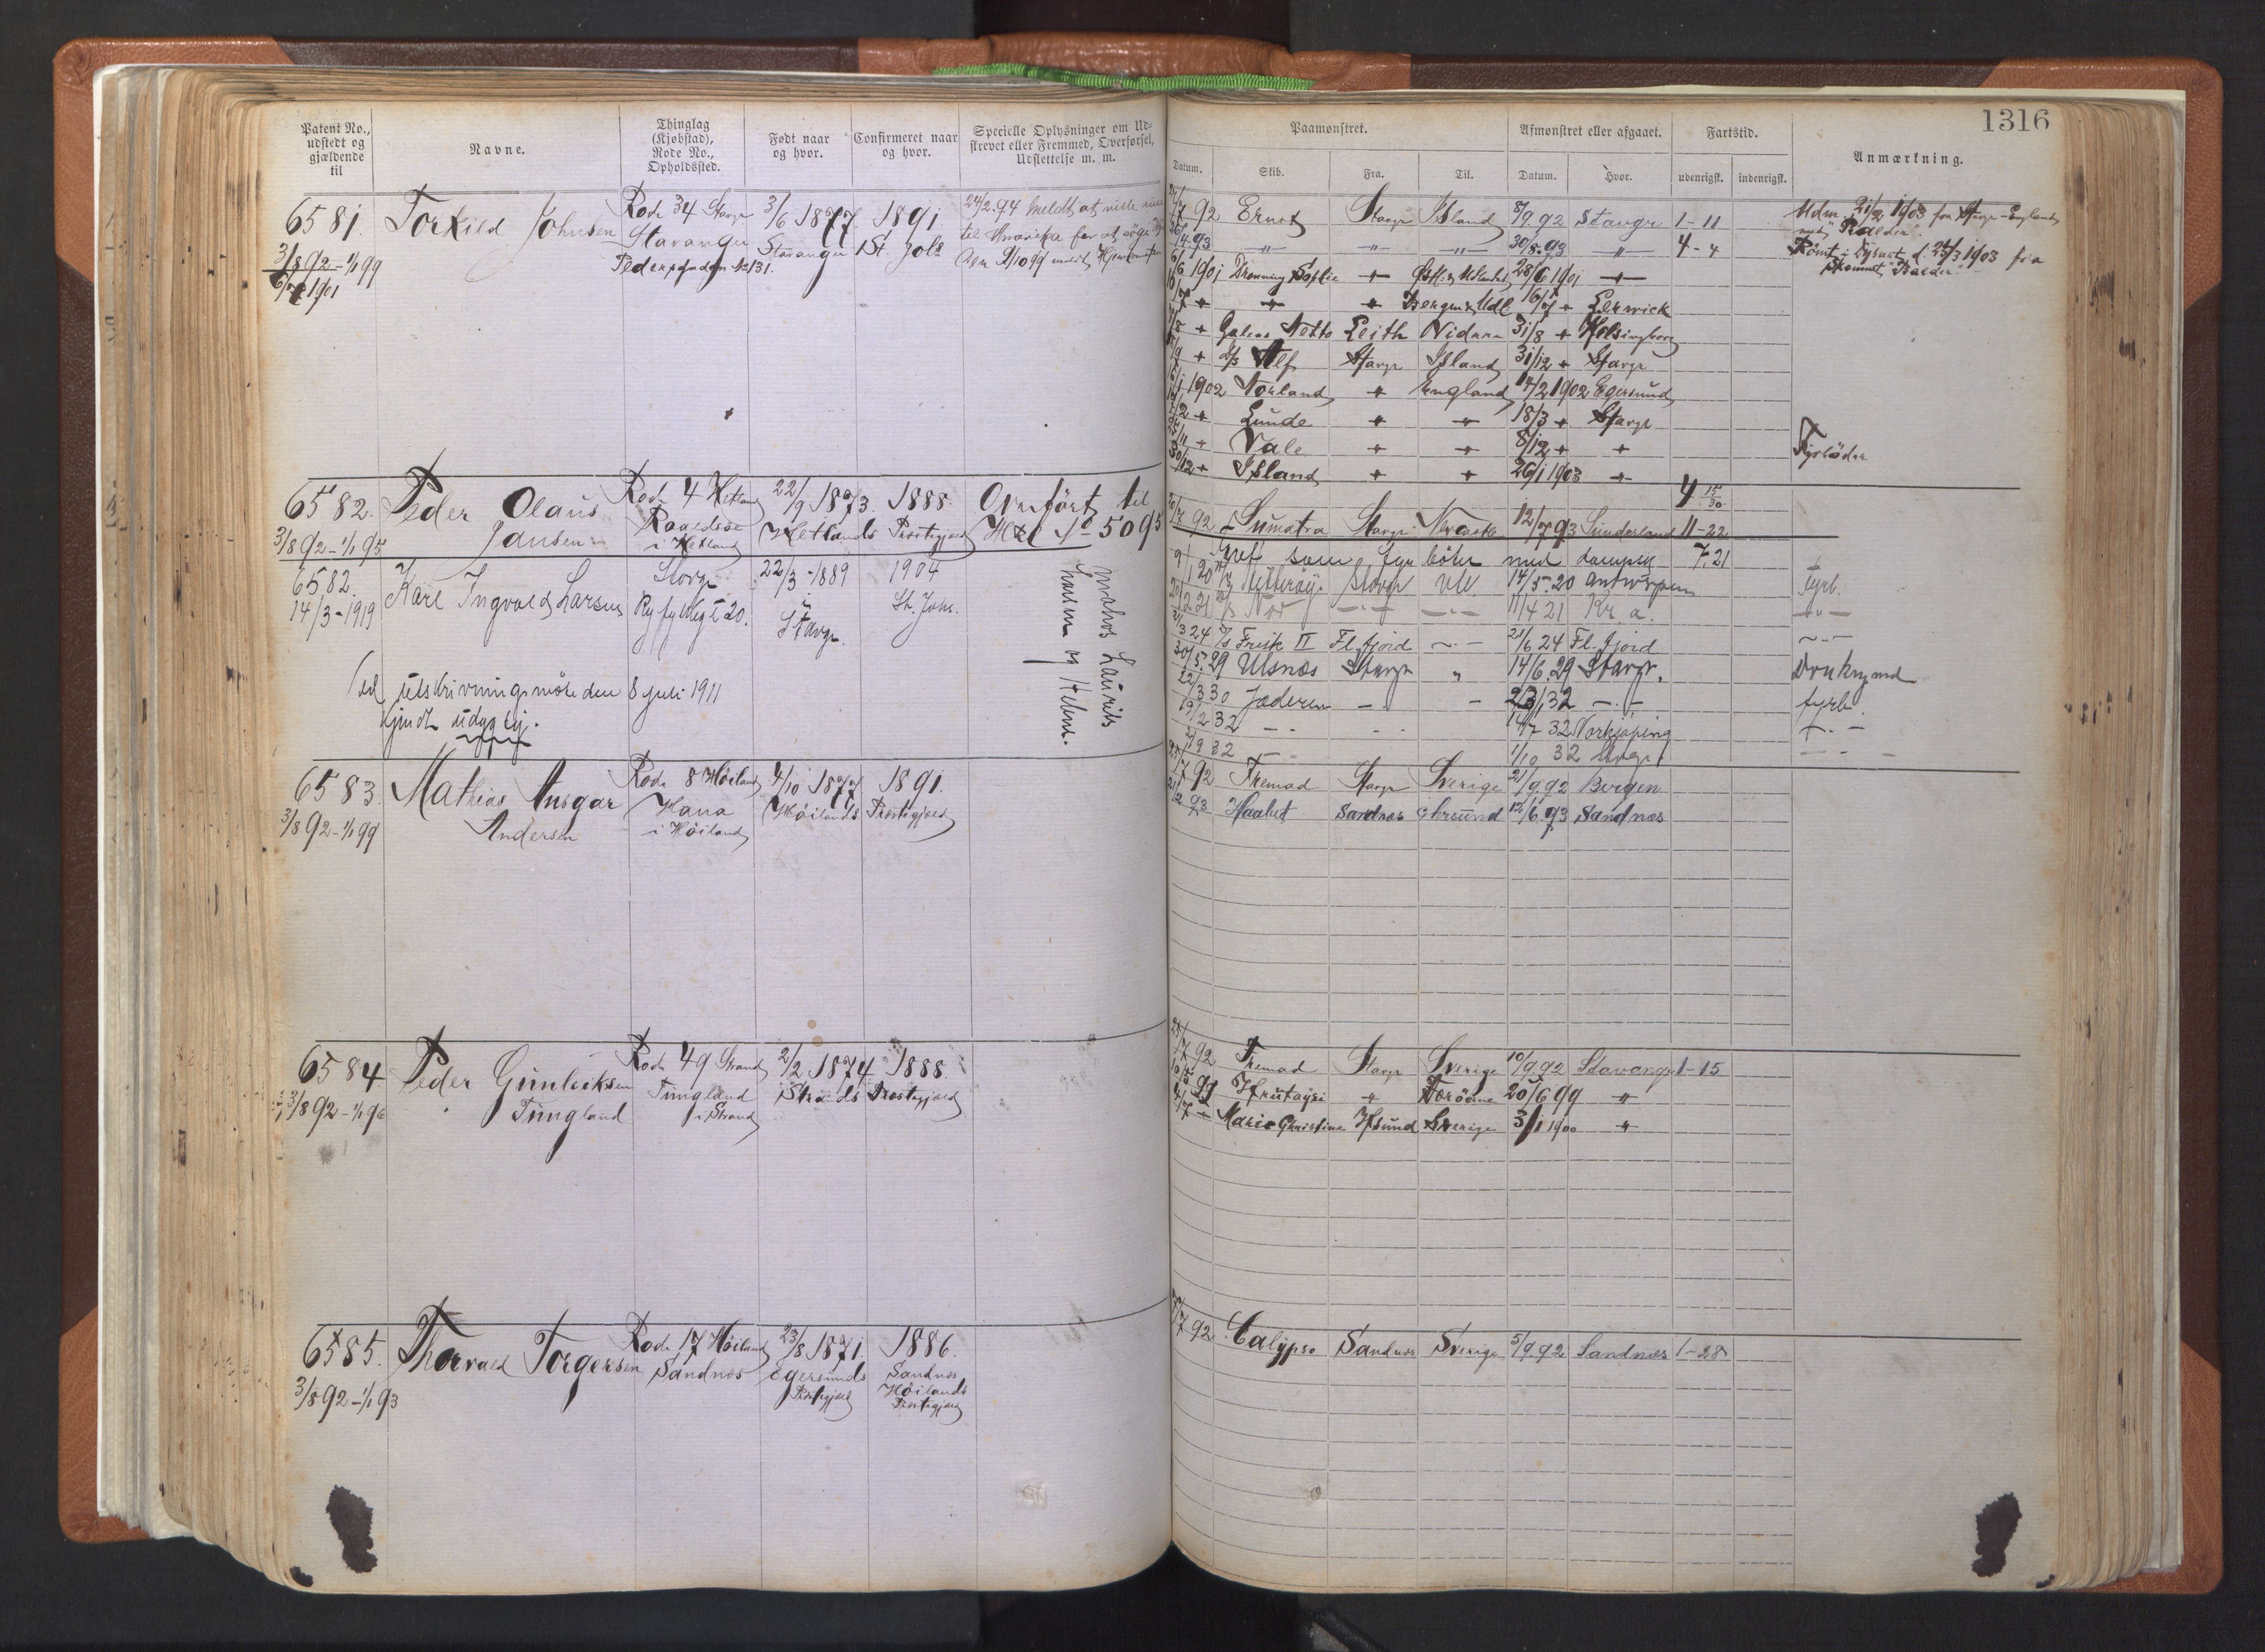 1316
Patent No., udstedt og gjældende til
Navne.
Thinglag (Kjøbstad), Rode No., Opholdssted.
Født naar og hvor.
Confirmeret naar og hvor.
Specielle Oplysninger om Udskrevet eller Fremmed, Overførsel, Udslettelse m. m.
Paamønstret.
Afmønstret eller afgaaet.
Fartstid.
Anmærkning.
Datum. Skib. Fra. Til. Datum. Hvor. udenrigsk. indenrigsk.
6581. Torkild Johnsen Rode 34 Stavgr 3/6 1877. 1891
Stavanger Stavanger St. Joh.
Pedersgaden No 131.
3/8 92 – 1/1 99
24/2.94 meldt at ville
til Amerika for at søge
92 Ernst Stavgr Island 8/9 92 Stavgr 1–11
93 –"– –"– –"– 30/8.93 –"– 4–4
1901 Dronning Sophie + 28/6 1901 +
+ + + Bergen & Udl 16/7 + Lerwick
+ Galeas Netto Leith Vidare 31/8 + Helsingborg
+ D/s Alf Stavgr Island 31/12 + Stavgr
1902 Norland + England 14/2 1902 Egersund
+ Lunde + + 18/3 + Stavgr
+ Vale + + 8/12 + + Fyrbøder
30/12 + Island + + 26/1 1903 +
Udm. 21/3 1903 fra Stavgr – England
med "Balder".
Rømt i Dysart d. 24/3 1903 fra
Skonnert "Balder".
4 15/30
6582. Peder Olaus Rode 4 Hetland 22/9 1873. 1888. Overført til
Jansen Raaedse Hetlands Præstigjæld Htl No 5095
i Hetland
3/8 92 – 1/1 95
92 Sumatra Stavgr Newcastle 12/7 93 Sunderland 11–22
6582. Karl Ingvald Larsen Stavgr 22/3 – 1889 1904
14/3 – 1919 Ryfylkeg t 20. i Stavgr. St. Joh.
Mathis Laurits
Larsen og Helene.
som fyrbøter med dampsk 7.21
1 20 Stavgr utl. 14/5.20 Antwerpen fyrb.
2 21 –"– –"– 11/4 21 Kr.a. –"–
3 24 Frisk II Fl. fjord –"– 21/6 24 Fl. fjord –"–
30/5.29 Ulsnæs Stavgr " 14/6.29 Stavgr. Donkeymd
22/3 30 Jæderen – – 2/3/32 –"– fyrb.
19/2 32 –"– –"– 14/7 32 Norkjøping –"–
9 32 – 1/10 32 Stvgr –"–
Ved utskrivningsmøte den 8 juli 1911
kjendt udygtig.
6583. Mathias Ansgar Rode 8 Høiland 4/10 1877 1891.
Andersen Hana Høilands Præstigjæld
i Høiland
3/8 92 – 1/1 99
7 92 Fremad Stavgr Sverige 21/9.92 Bergen
2 93 Haabet Sandnæs Ekersund 12/6.93 Sandnæs
6584 Peder Gunleiksen Rode 49 Strand 2/2 1874 1888.
Tungland Tungland Strands Præstigjæld
i Strand
3/8 92 – 1/1 96
7 92 Fremad Stavgr Sverige 10/9.92 Stavanger 1–15
99 + Færøerne 20/6 99 +
Marie Christine Hfsund Sverige 3/1 1900 +
6585. Thorvald Torgersen Rode 17 Høiland 23/8 1871. 1886.
Sandnæs Egersunds Sandnæs
Præstigjæld Høilands
Præstigjæld
3/8 92 – 1/1 93
7 92 Calypso Sandnæs Sverige 5/9.92 Sandnæs 1–28